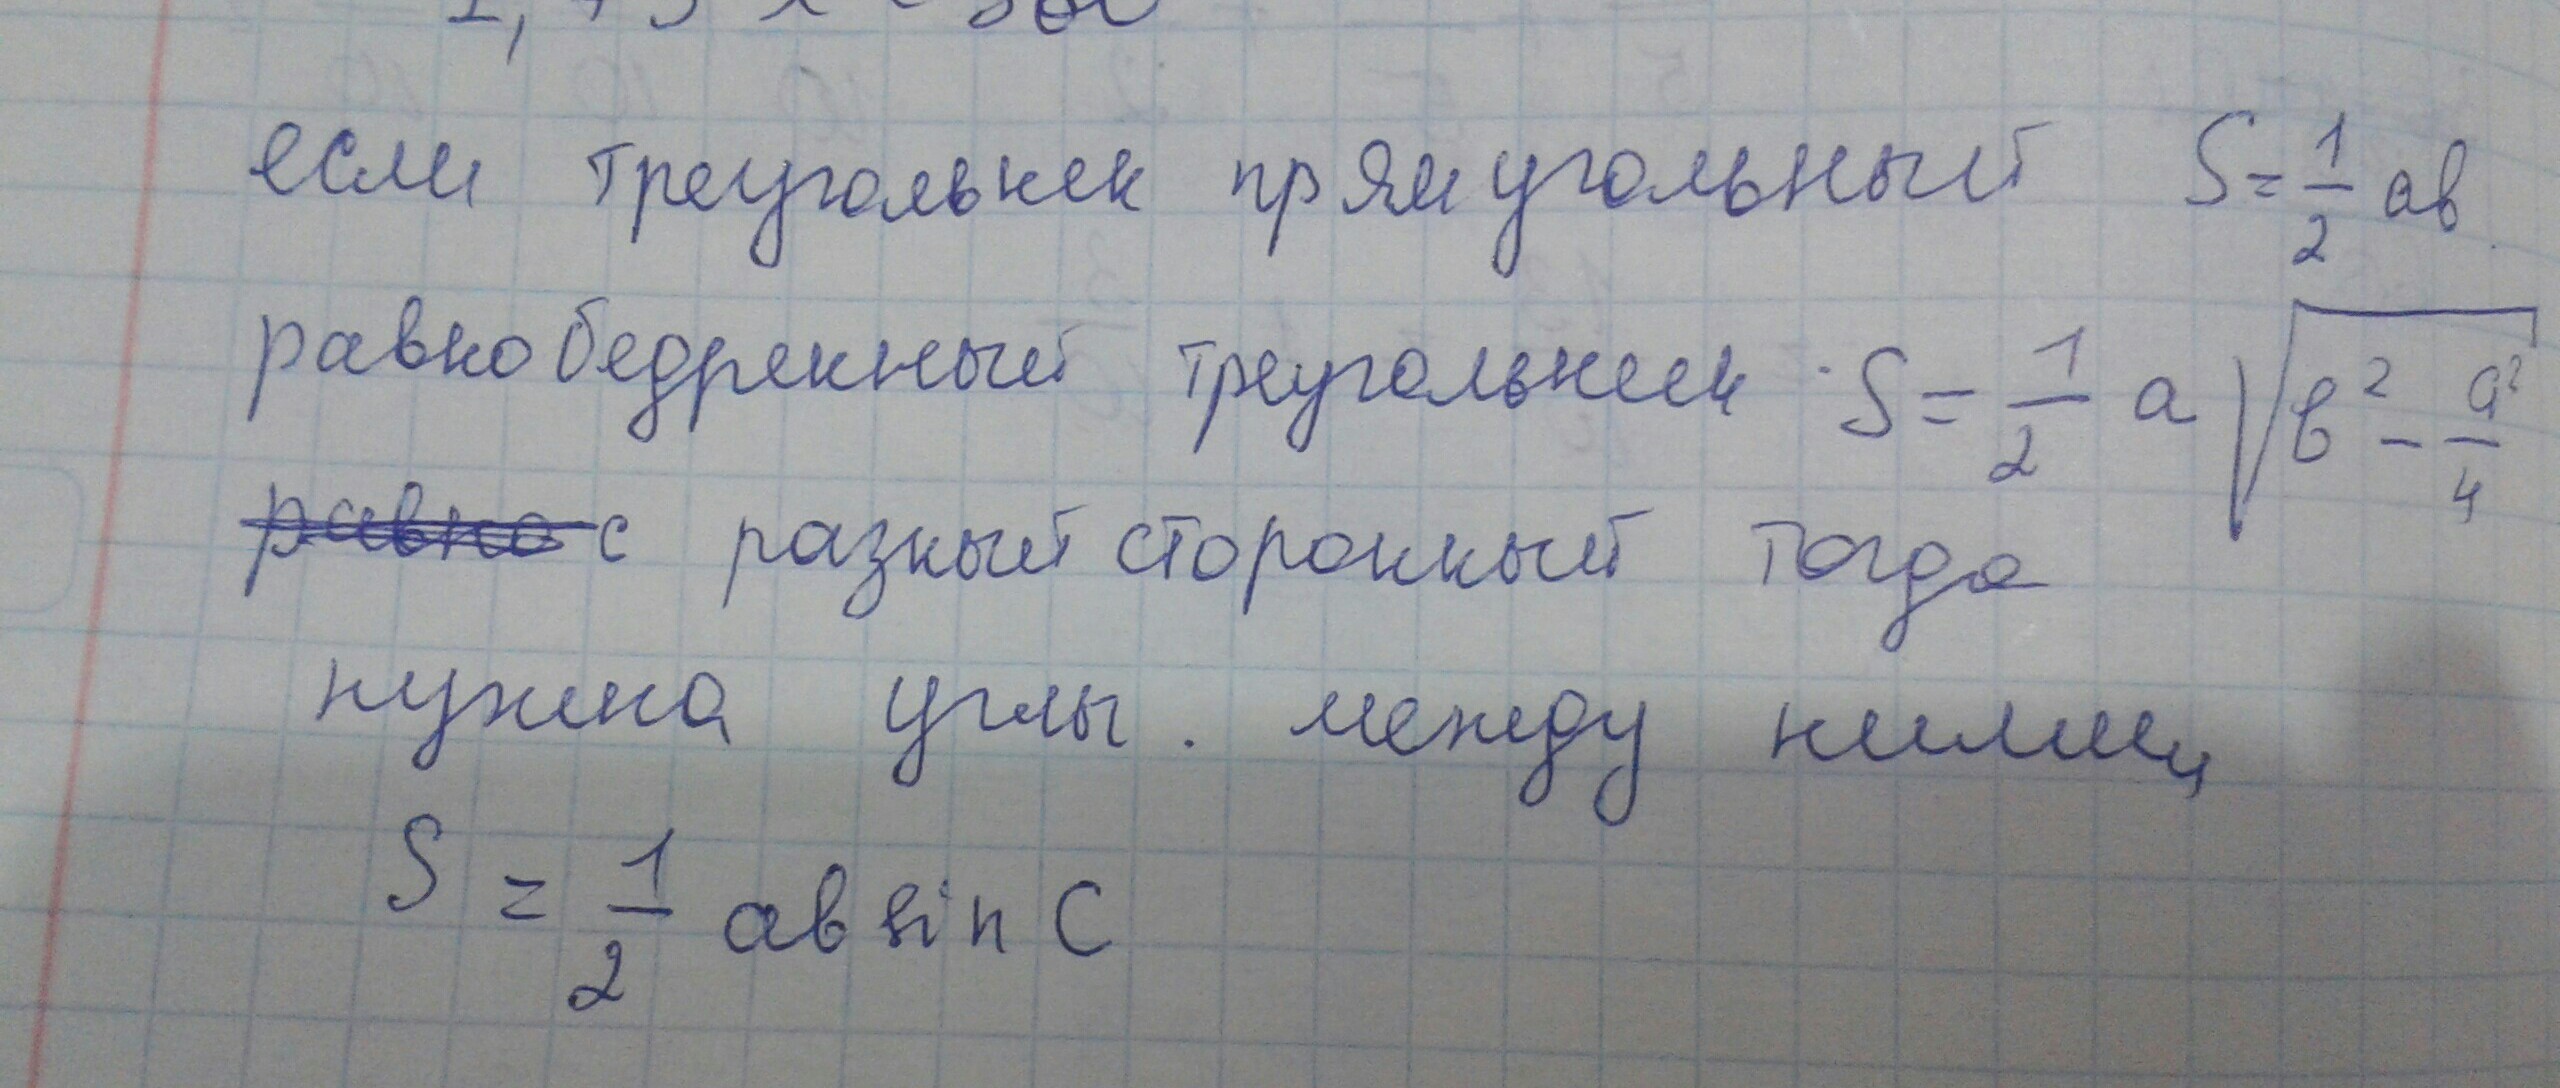 если треугольник прямоугольный S = 1/2 ав.
равнобедренный треугольник S = 1/2 a √(в² - a²/4)
равно с разный сторонный тогда
нужна углы. между ними,
S = 1/2 ав sin C